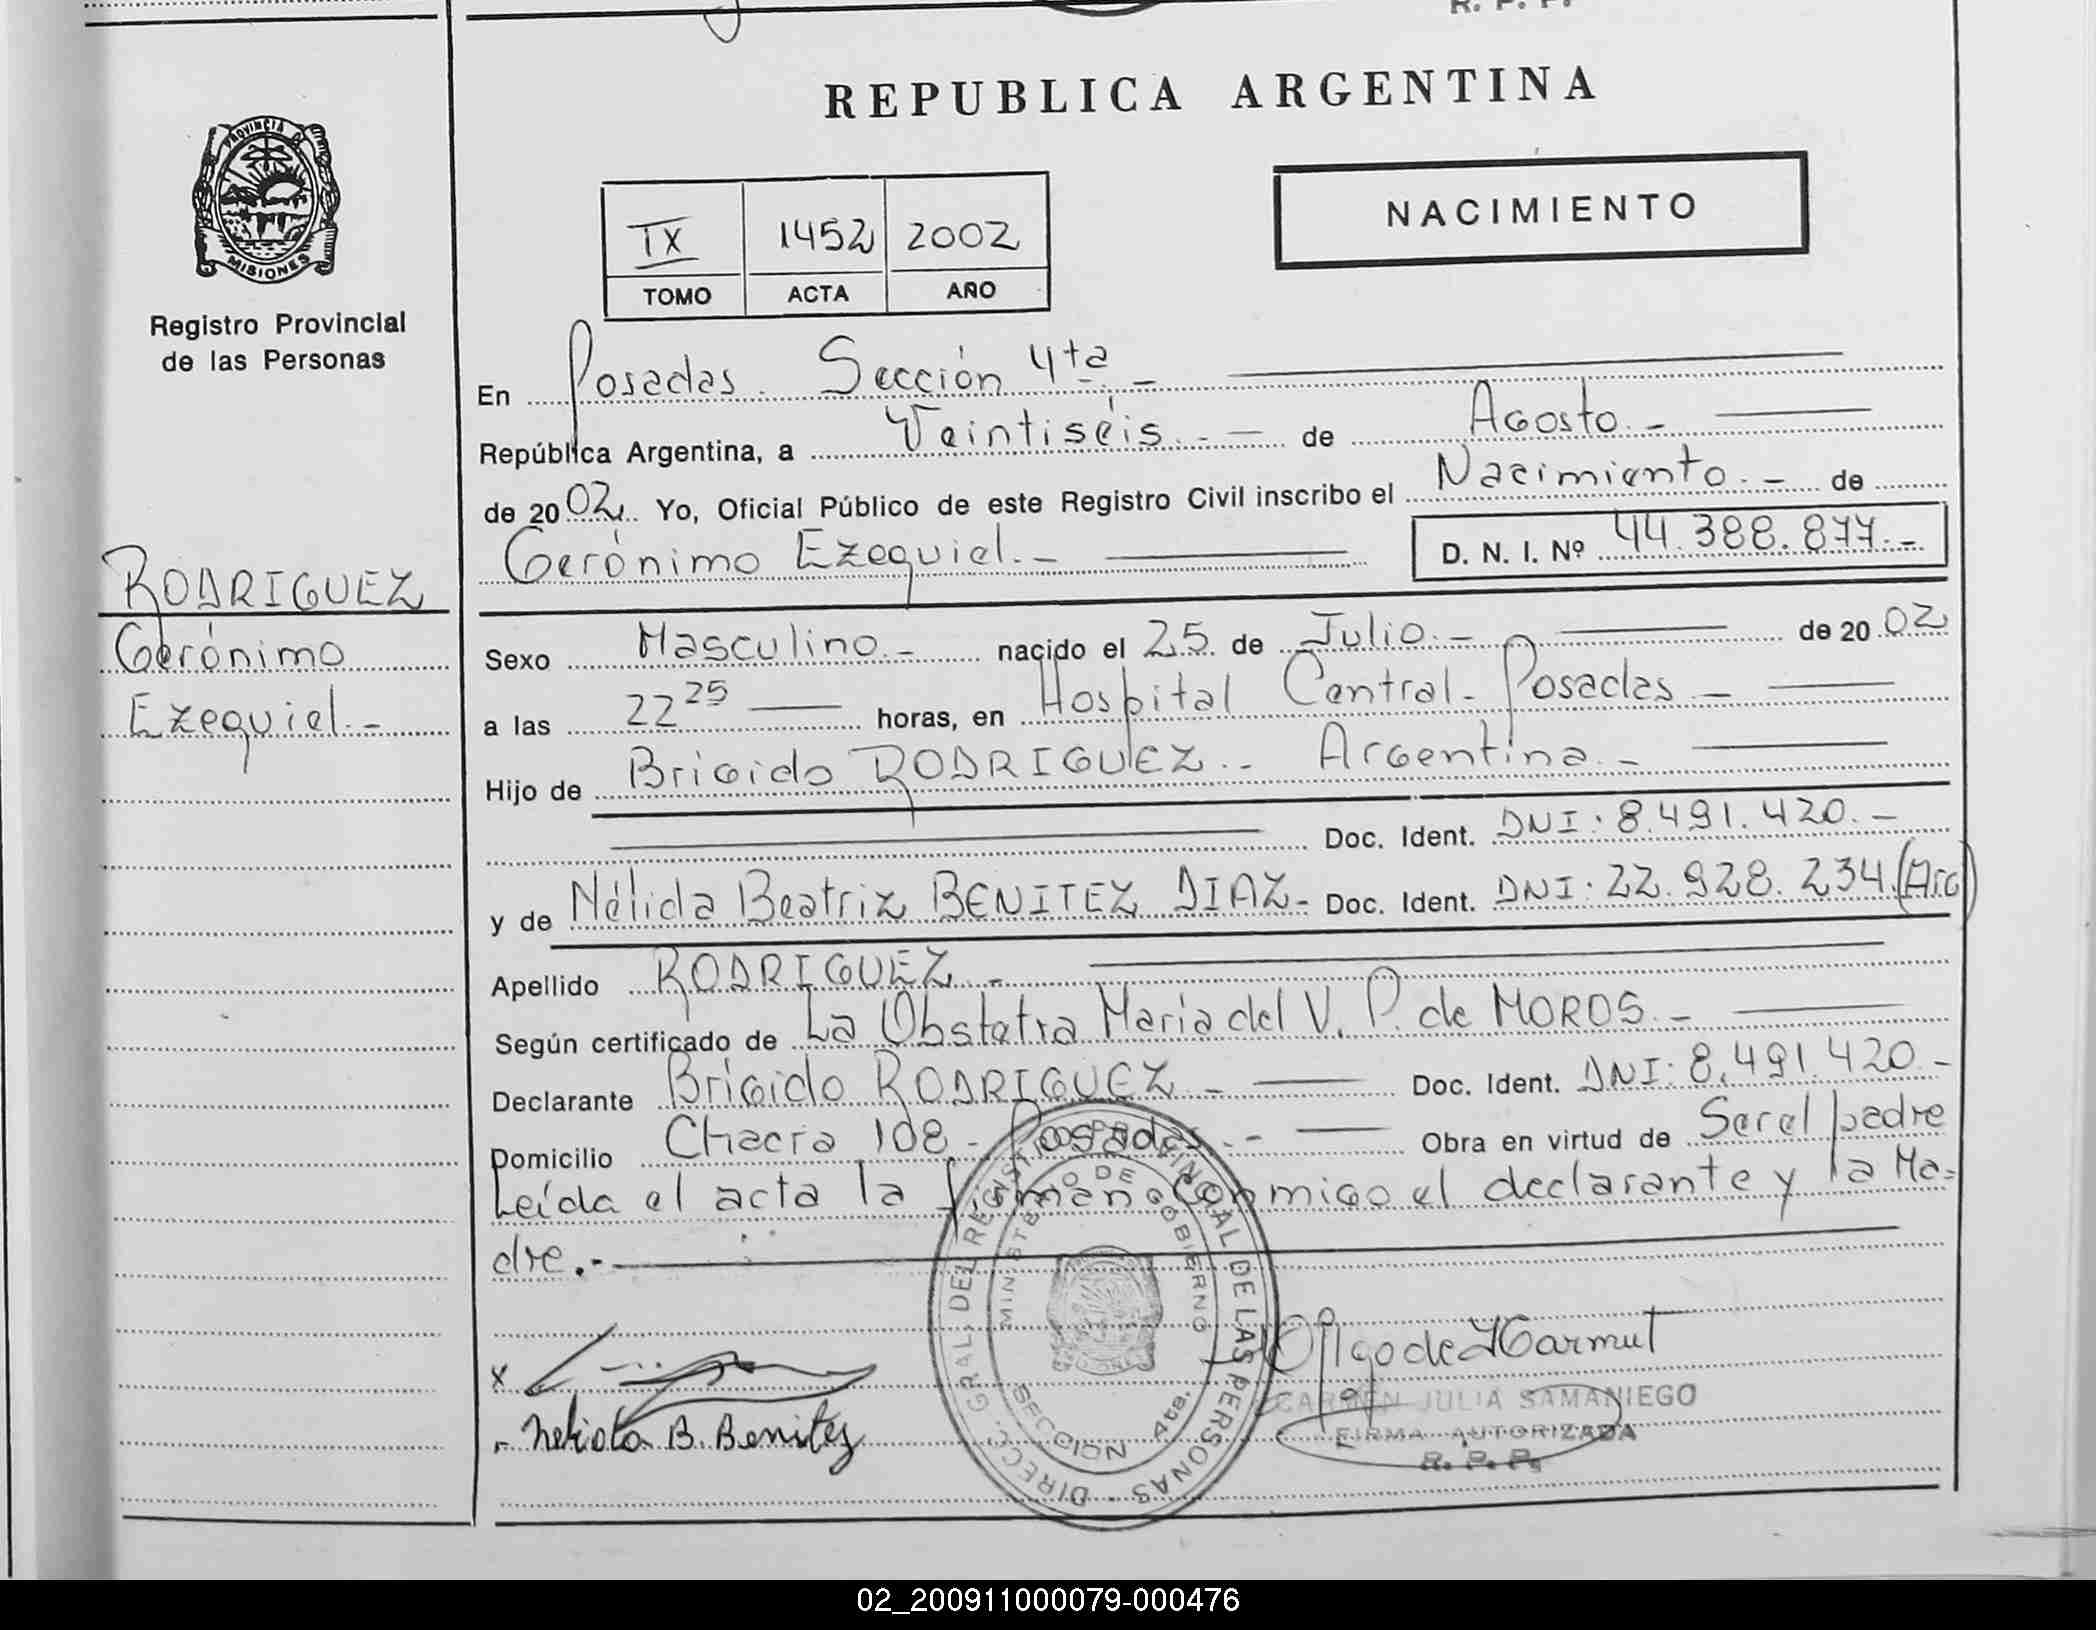 R. P. P.
REPUBLICA ARGENTINA
PROVINCIA DE
MISIONES
Registro Provincial
de las Personas
NACIMIENTO
IX 1452 2002
TOMO ACTA AÑO
En Posadas. Sección 4ta.-
República Argentina, a Veintiséis.- de Agosto.-
de 2002. Yo, Oficial Público de este Registro Civil inscribo el Nacimiento.- de
Gerónimo Ezequiel.- D. N. I. Nº 44.388.877.-
RODRIGUEZ
Gerónimo
Ezequiel.-
Sexo Masculino.- nacido el 25. de Julio.- de 2002
a las 22 25 horas, en Hospital Central- Posadas-
Hijo de Brigido RODRIGUEZ.- Argentina.-
Doc. Ident. DNI: 8.491.420.-
y de Nélida Beatriz BENITEZ DIAZ- Doc. Ident. DNI: 22.928.234.(Arg)
Apellido RODRIGUEZ.-
Según certificado de La Obstetra Maria del V. P. de MOROS.-
Declarante Brigido RODRIGUEZ.- Doc. Ident. DNI: 8.491.420.-
Domicilio Chacra 108.- Posadas.- Obra en virtud de Ser el padre
Leída el acta la firman conmigo el declarante y la Ma=
dre.-
DIRECC. GRAL. DEL REGISTRO PROVINCIAL DE LAS PERSONAS
MINISTERIO DE GOBIERNO
SECCION 4ta.
x
B. Benitez
CARMEN JULIA SAMANIEGO
FIRMA AUTORIZADA
R. P. P.
02_200911000079-000476